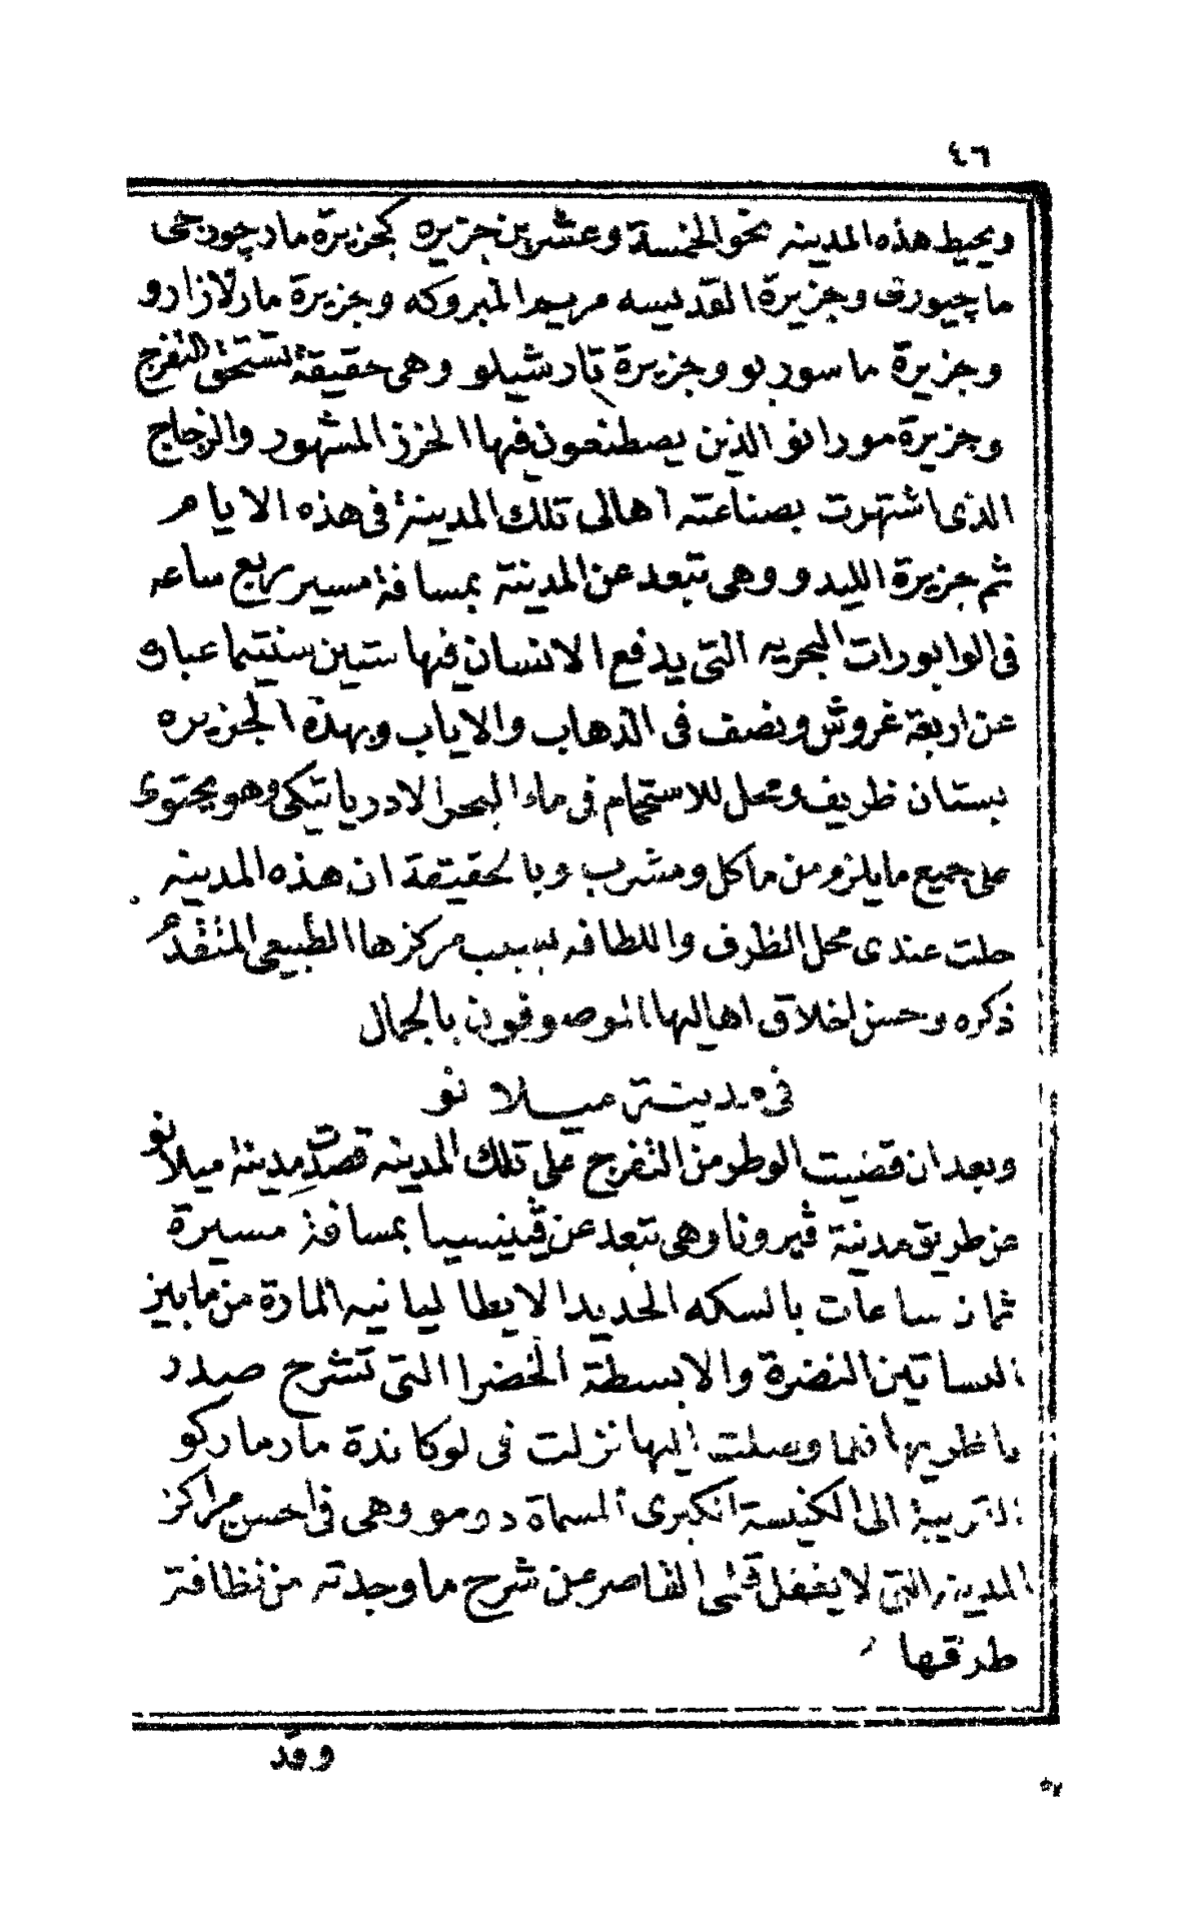 ٤٦
ويحيط هذه المدينه نحو الخمسة وعشرين جزيره كجزيرة مارچورجى
ماچيورى وجزيرة القديسه مريم المبروكه وجزيرة مارلازارو
وجزيرة ماسوربو وجزيرة تارشيلو وهى حقيقة تستحق التفرج
وجزيرة مورانو الذين يصطنعون فيها الخرز المشهور والزجاج
الذى اشتهرت بصناعته اهالى تلك المدينة فى هذه الايام
ثم جزيرة الليدو وهى تبعد عن المدينة بمسافة مسير ربع ساعه
فى الوابورات البحريه التى يدفع الانسان فيها ستين سنتيما عباره
عن اربعة غروش ونصف فى الذهاب والاياب وبهذه الجزيره
بستان ظريف ومحل للاستحمام فى ماء البحر الادرياتيكى وهو يحتوى
على جميع مايلزم من ماكل ومشرب وبالحقيقة ان هذه المدينه
حلت عندى محل الظرف واللطافه بسبب مركزها الطبيعى المتقدم
ذكره وحسن اخلاق اهاليها الموصوفون بالجمال
فى مدينة ميلانو
وبعد ان قضيت الوطر من التفرج على تلك المدينه قصدت مدينة ميلانو
عن طريق مدينة ڤيرونا وهى تبعد عن ڤينيسيا بمسافة مسيرة
ثمان ساعات بالسكه الحديد الايطاليانيه المارة من مابين
البساتين النضرة والابسطة الخضرا التى تشرح صدر
ناظريها فلما وصلت اليها نزلت فى لوكاندة مارماركو
القريبة الى الكنيسة الكبرى المسماة دومو وهى فى احسن مراكز
المدينة التى لايغفل قلمى القاصر عن شرح ماوجدته من نظافة
طرقها
وقد